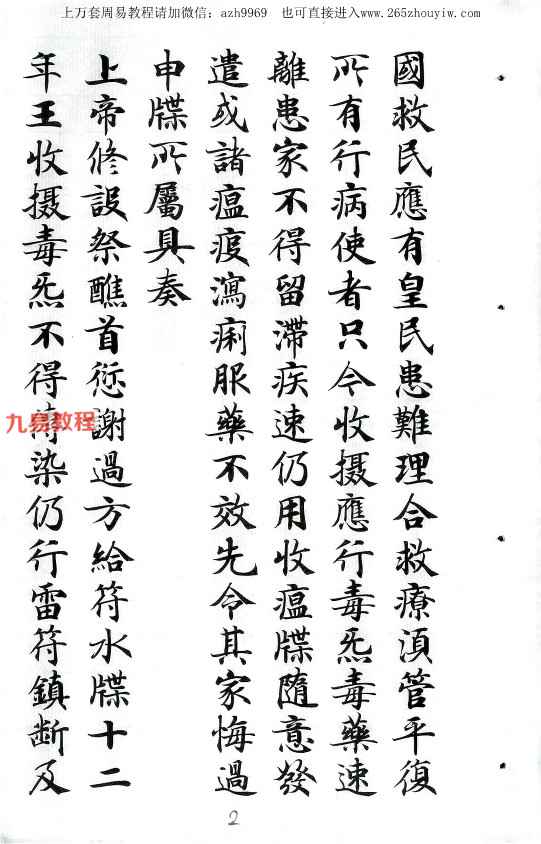 上万套周易教程请加微信：azh9969 也可直接进入www.265zhouyiw.com
國救民應有皇民患難理合救療湏管平復
所有行病使者只令收摄應行毒炁毒藥速
離患家不得留滯疾速仍用收瘟牒隨意發
遣或諸瘟疫瀉痢服藥不效先令其家悔過
申牒所屬具奏
上帝修設祭醮首愆謝過方給符水牒十二
年王收摄毒炁不得染仍行雷符鎮断及
九易教程
2